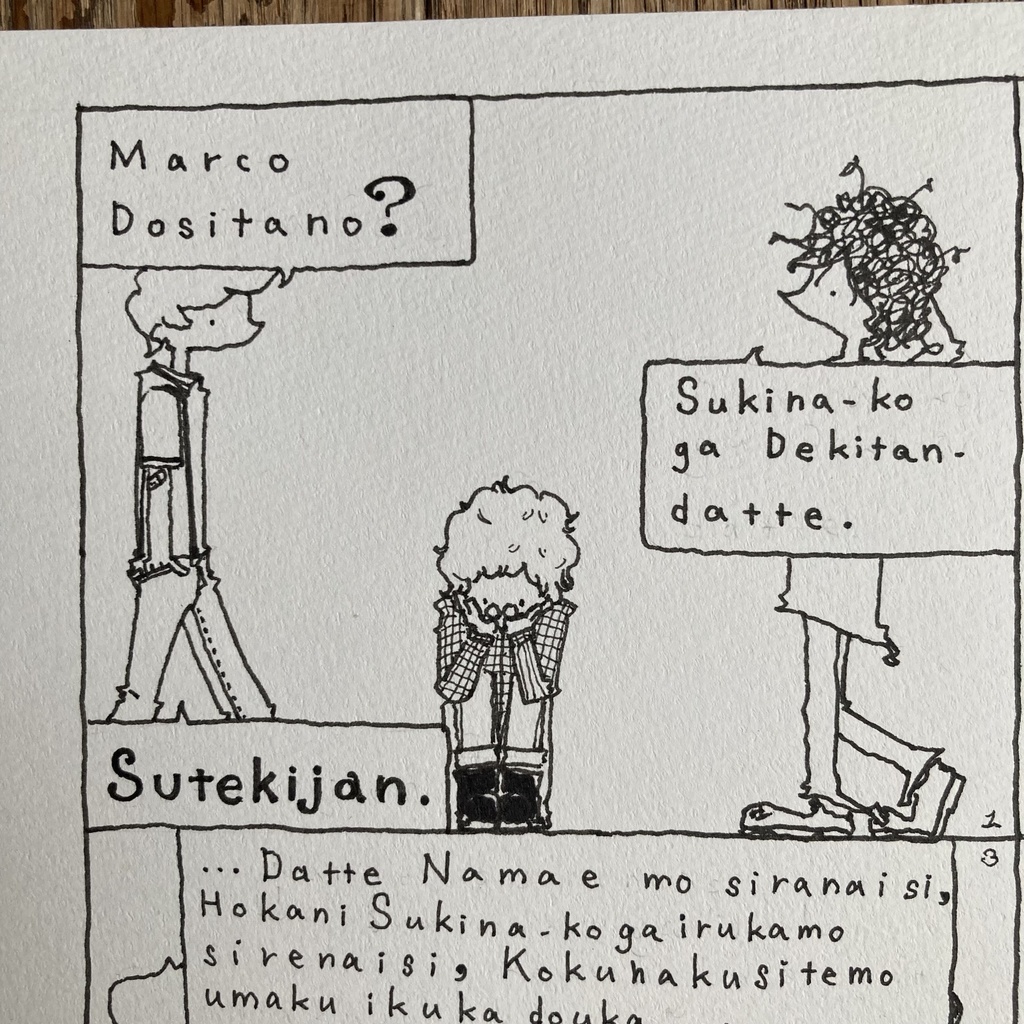 Marco
Dositano?
Sukina-ko
ga Dekitan-
datte.
Sutekijan.
1
3
... Datte Namae mo siranaisi,
Hokani Sukina-ko ga irukamo
sirenaisi, Kokuhakusitemo
umaku ikuka douka